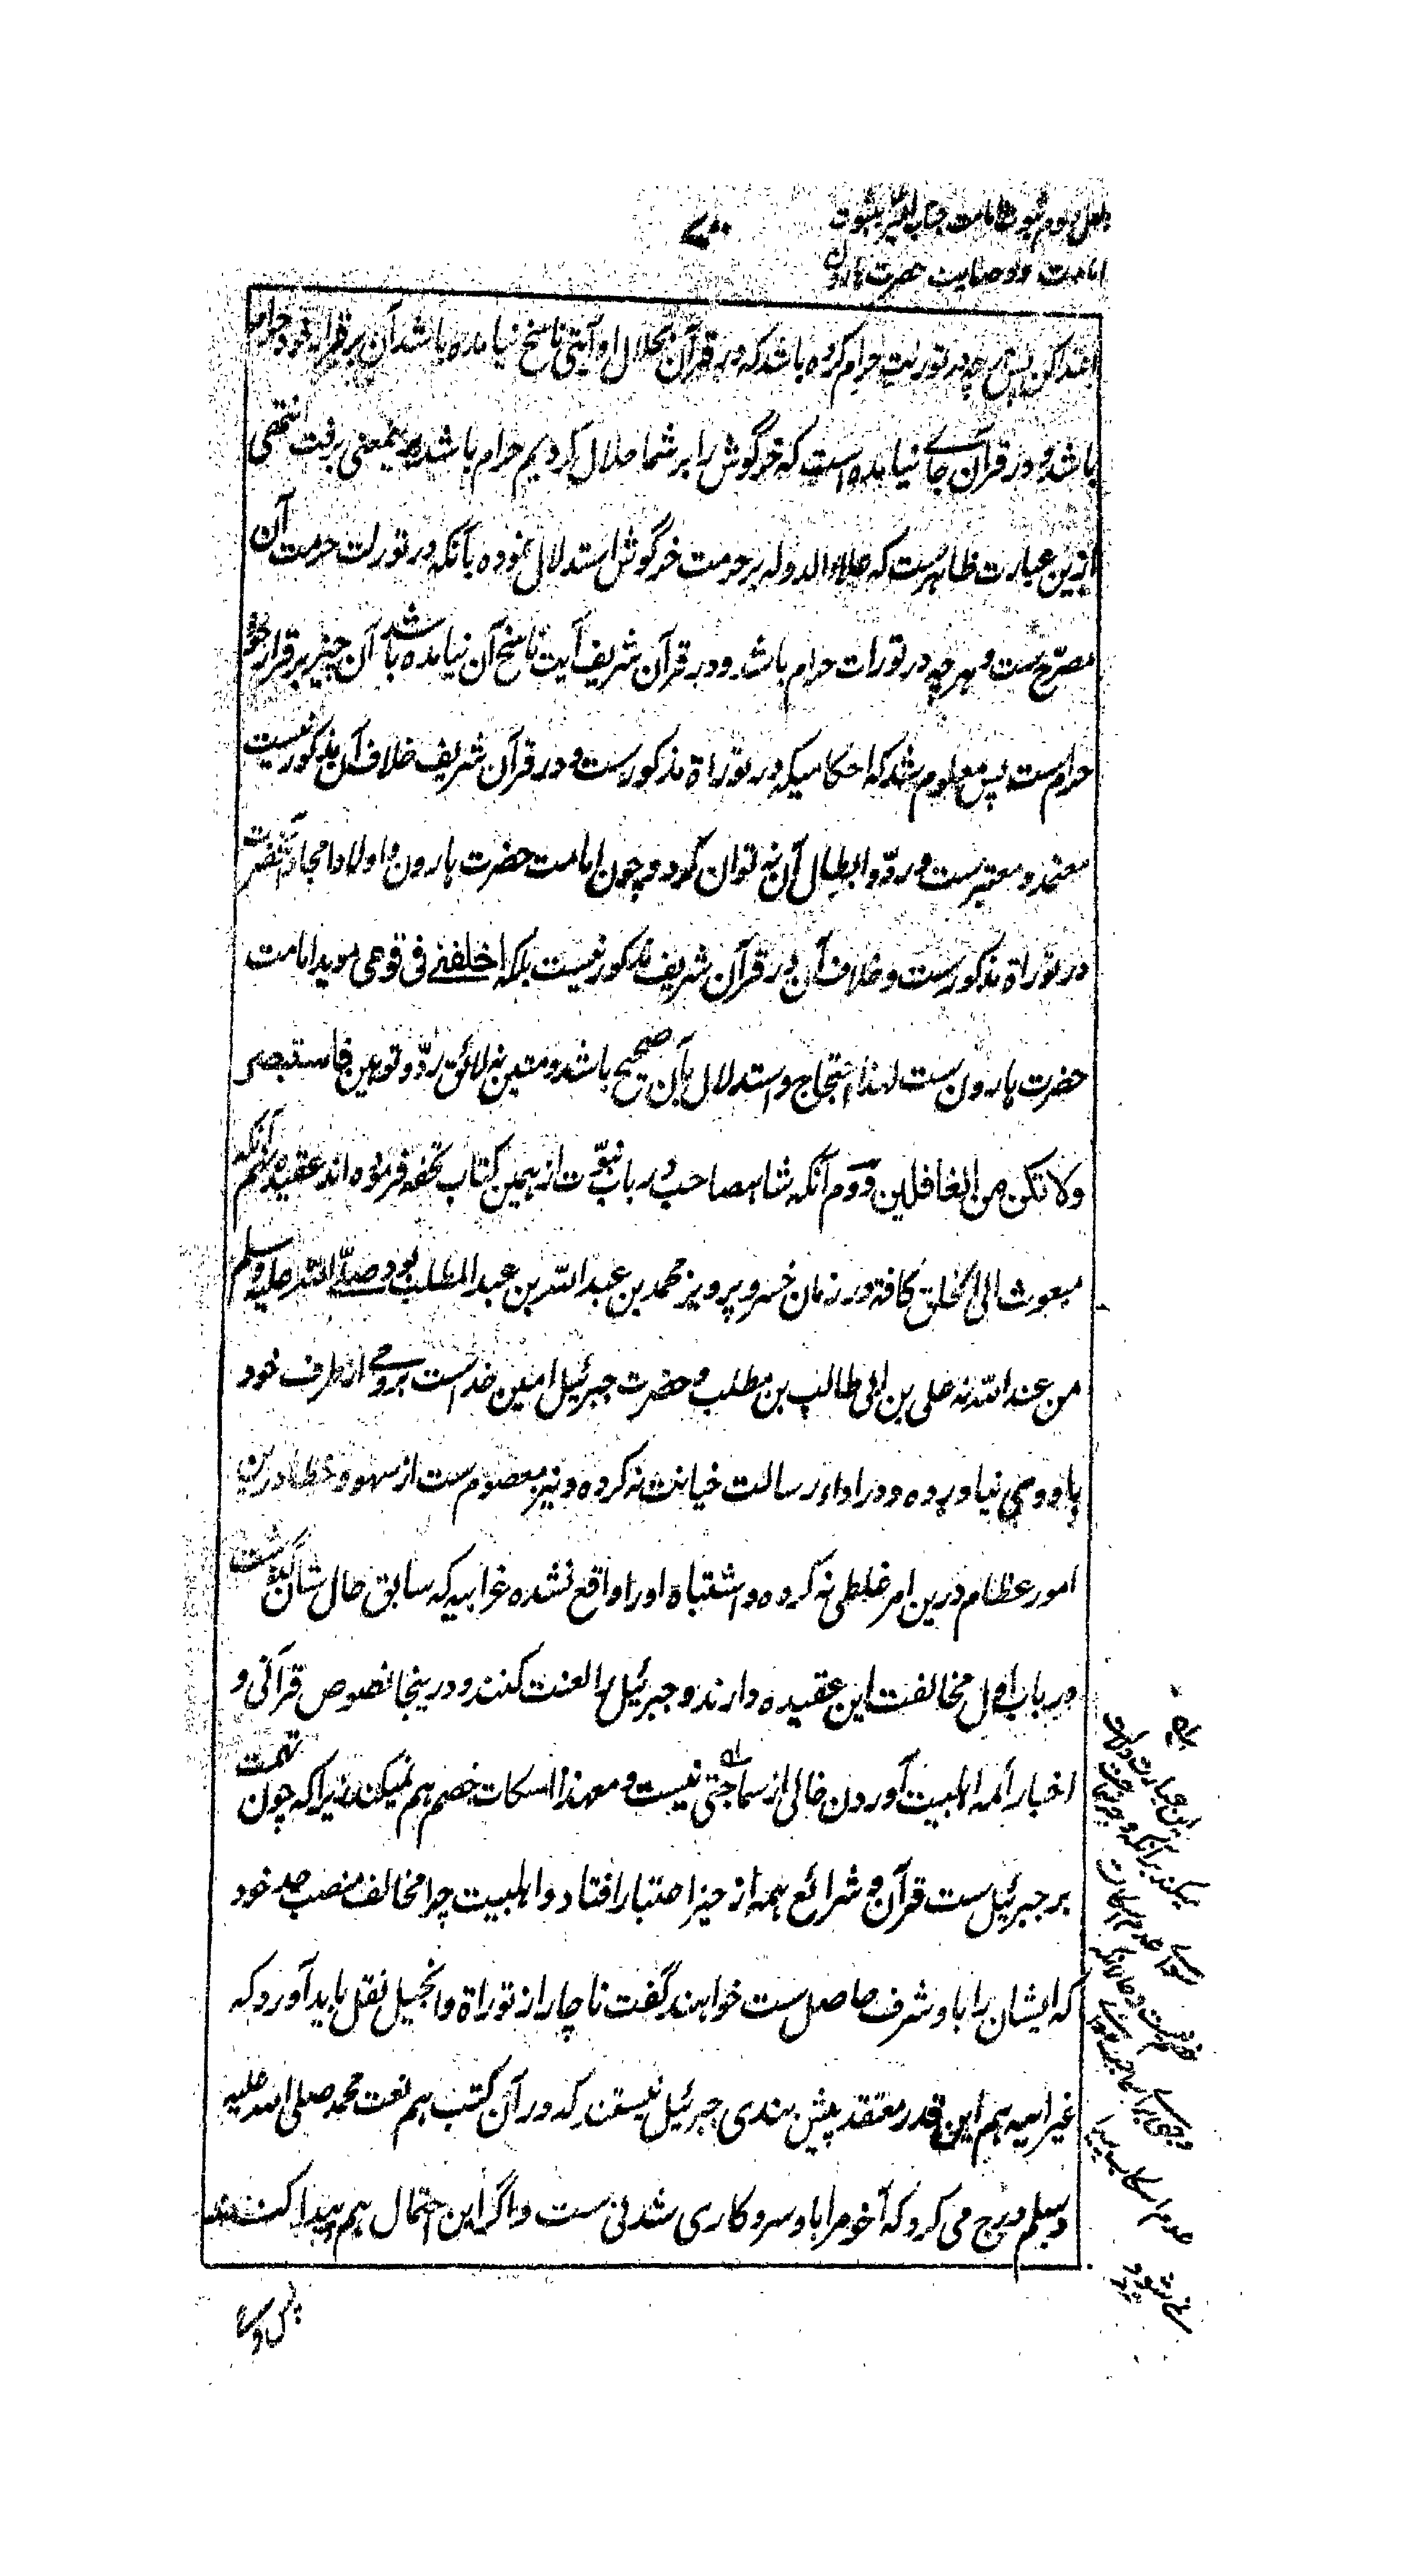 دلیل دوم ثبوت امامت جناب امیر بثبوت
امامت و وصایت حضرت هارون
پس هر چه در توریت حرام کرده باشد که در قرآن بحلال او آیتی ناسخ نیامده باشد آن بر قرار خود حرام
باشد و در قرآن جاے نیامده است که خرگوش را بر شما حلال کردیم حرام باشد بدینمعنی برفت انتهی
ازین عبارت ظاهرست که علاء الدوله بر حرمت خرگوش استدلال نموده بآنکه در توریت حرمت آن
مصرّح ست و هر چه در تورات حرام باشد و در قرآن شریف آیت ناسخ آن نیامده باشد آن چیز بر قرار خود
حرام ست پس معلوم شد که احکامیکه در توراة مذکورست و در قرآن شریف خلاف آن مذکور نیست
معتمد و معتبر ست و ردّ و ابطال آن نه توان کرد و چون امامت حضرت هارون و اولاد امجاد آنحضرت
در توراة مذکورست و خلاف آن در قرآن شریف مذکور نیست بلکه اخلفنے فی قومی موید امامت
حضرت هارون ست لهذا احتجاج و استدلال بآن صحیح باشد و متین نه لائق ردّ و توهین فاستبصر
ولا تکن من الغافلین دوم آنکه شاهصاحب در باب نبوّت از همین کتاب تحفه فرموده اند عقیده نهم آنکه
مبعوث الی الخلق کافة در زمان خسرو پرویز محمد بن عبد الله بن عبد المطلب بود صلّے الله علیه وسلم
من عند الله نه علی بن ابی طالب بن مطلب و حضرت جبرئیل امین خداست بر وحے از طرف خود
باو وحی نیاورده و در اداء رسالت خیانت نه کرده و نیز معصوم ست از سهو و خطا درین
امور عظام درین امر غلطی نه کرده و اشتباه او را واقع نشده غرابیه که سابق حال شان گذشت
در باب اول مخالفت این عقیده دارند و جبرئیل را لعنت کنند و درینجا نصوص قرآنی و
اخبار ائمه اهلبیت آوردن خالی از سماجتی نیست و معهذا اسکات خصم هم نمیکند زیرا که چون تهمت
بر جبرئیل ست قرآن و شرائع همه از حیز اعتبار افتاد و اهلبیت چرا مخالف منصب جد خود
که ایشان را باو شرف حاصل ست خواهند گفت ناچار از توراة و انجیل نقل باید آورد که
غیر امیه هم این قدر معتقد پیش بندی جبرئیل نیستند که در آن کتب هم نعت محمد صلی الله علیه
وسلم درج می کرد که آخر مرا باو سروکاری شدنی ست و اگر این احتمال هم پیدا کنند
این عبارت دلالت
میکند بر آنکه
عدم اسکات
پس در